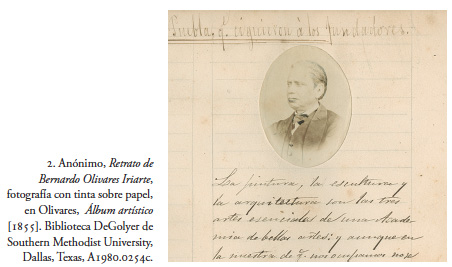 2. Anónimo, Retrato de
Bernardo Olivares Iriarte,
fotografía con tinta sobre papel,
en Olivares, Álbum artístico
[1855]. Biblioteca DeGolyer de
Southern Methodist University,
Dallas, Texas, A1980.0254c.
Puebla, q. siguieron à los fundadores.
La pintura, la escultura y
la arquitectura son las tres
artes esenciales de una Acade
mia de bellas artes: y aunque en
la nuestra de P. nos ocupamos